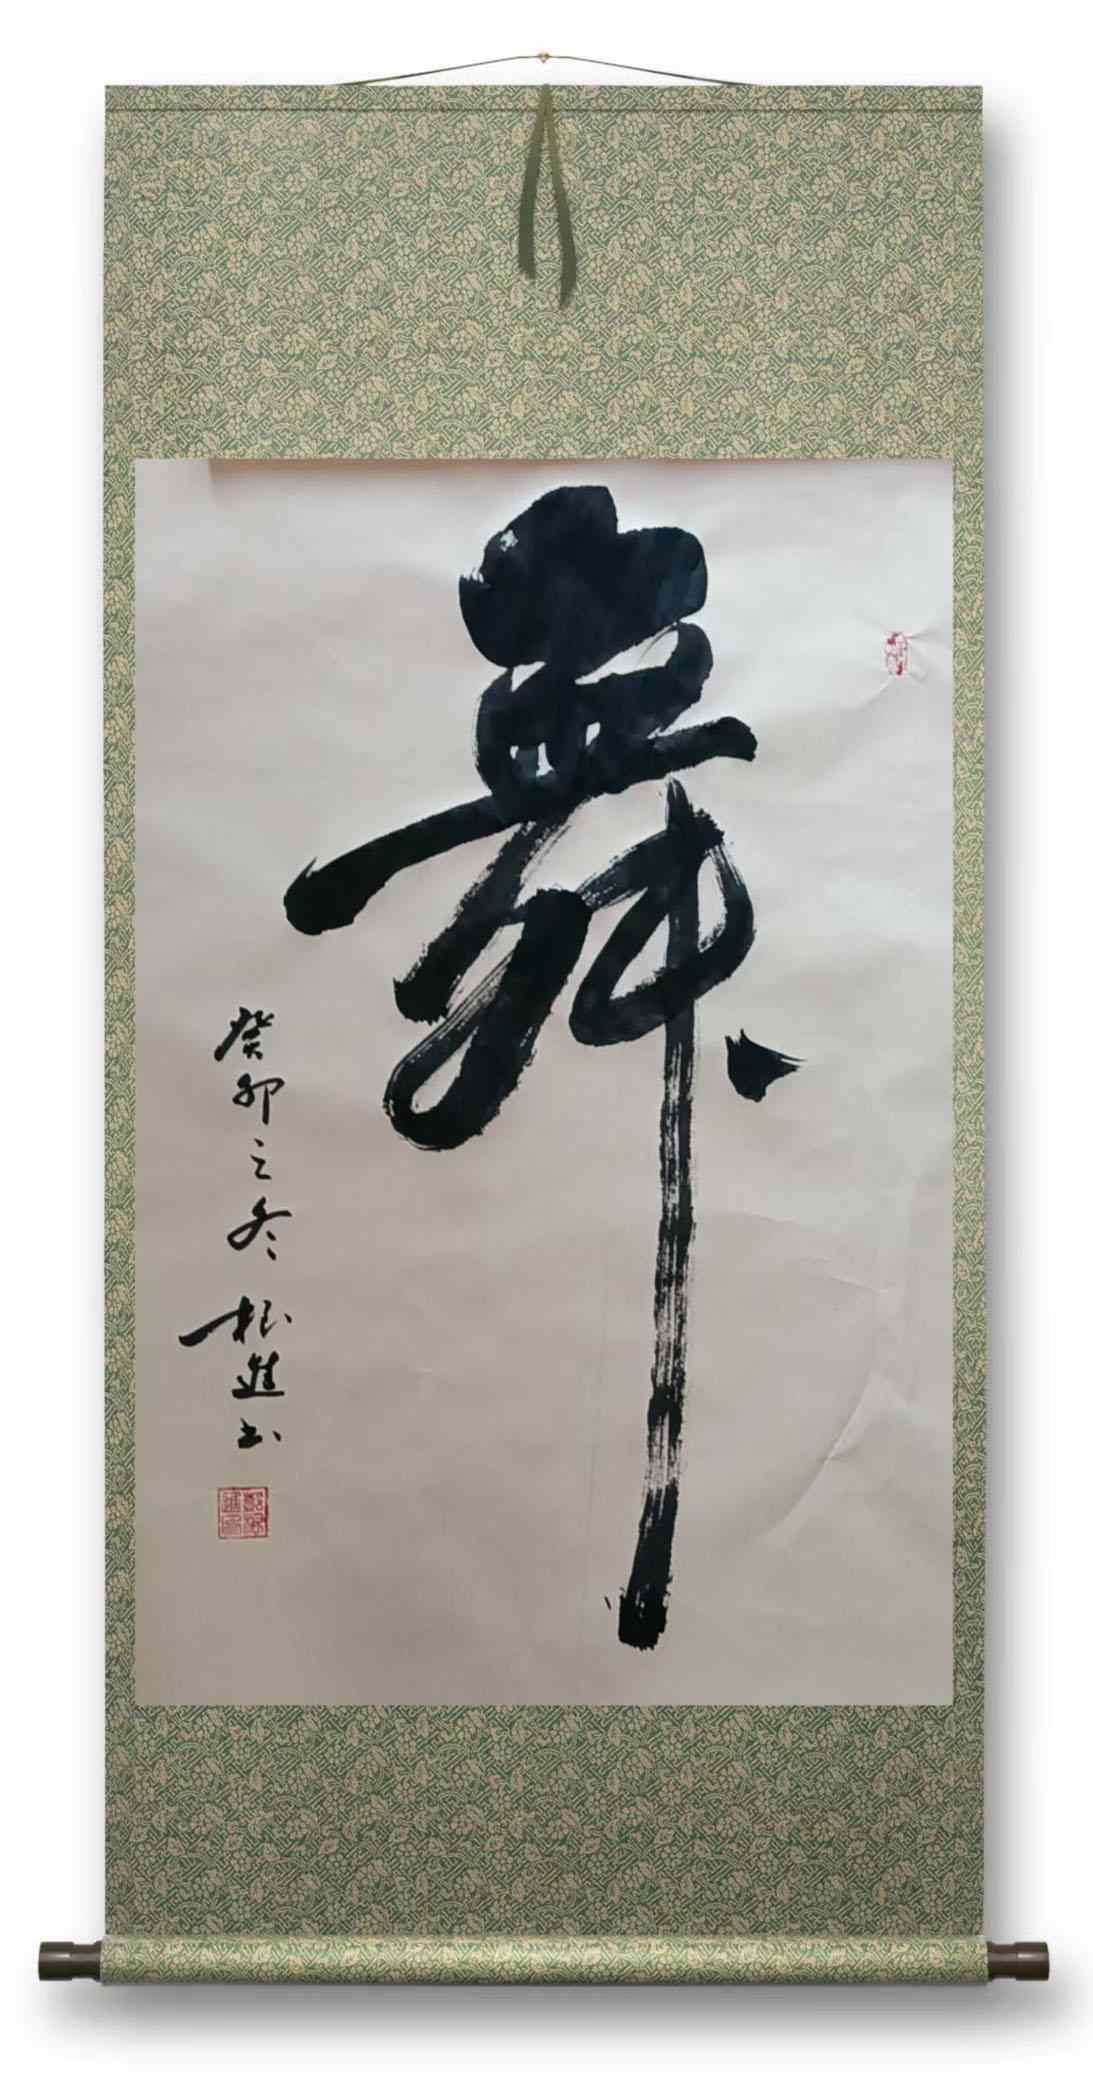 舞
癸卯之冬 松進书